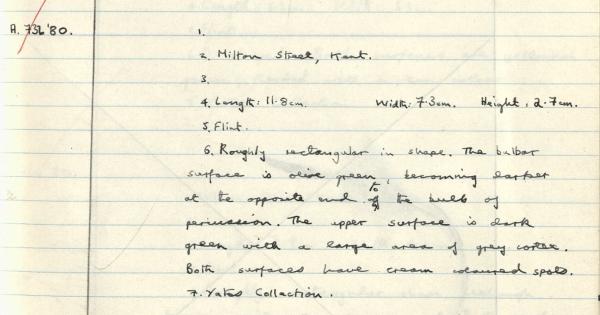 A. 736'80.
1.
2. Milton Street, Kent.
3.
4. Length: 11.8cm. Width: 7.3cm. Height: 2.7cm.
5. Flint.
6. Roughly rectangular in shape. The bulbar
surface is olive green, becoming darker
at the opposite end to the bulb of
percussion. The upper surface is dark
green with a large area of grey cortex.
Both surfaces have cream coloured spots.
7. Yates Collection.